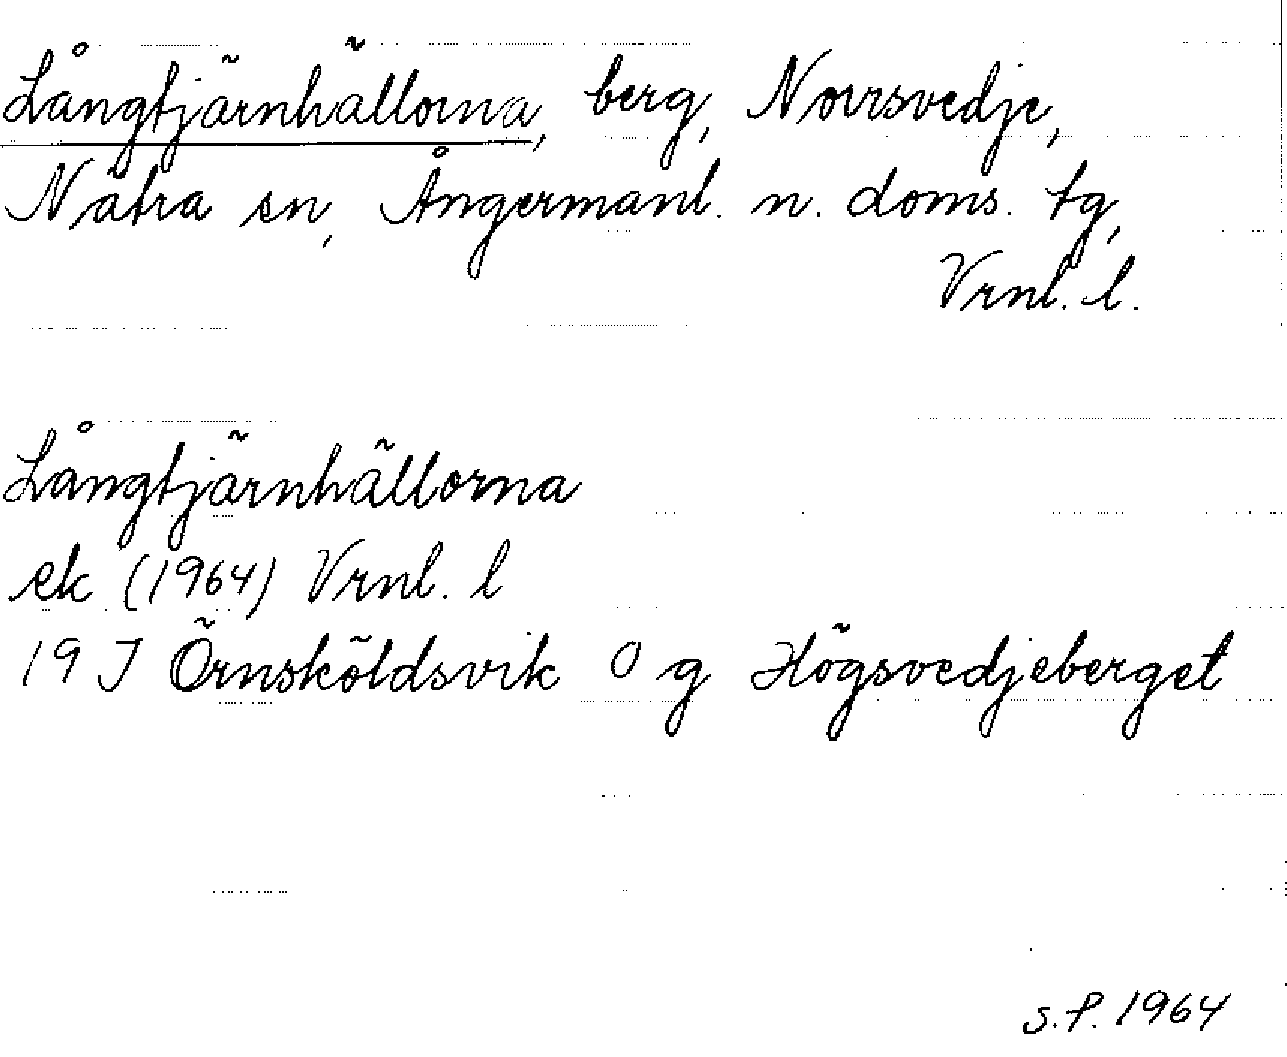 Långtjärnhällorna, berg, Norrsvedje,
Nätra sn, Ångermanl. n. doms. tg,
Vrnl. l.
Långtjärnhällorna
ek (1964) Vrnl. l
19 J Örnsköldsvik 0 g Högsvedjeberget
S.P. 1964